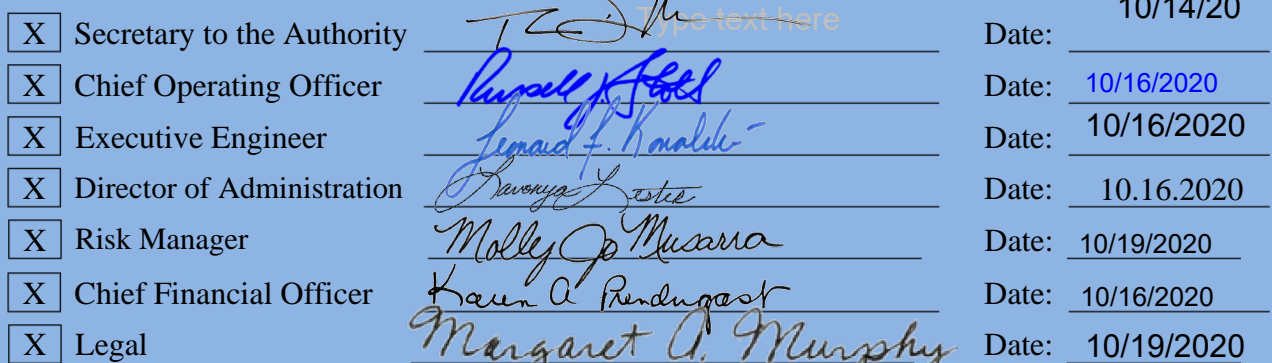 X Secretary to the Authority Type text here Date: 10/14/20
X Chief Operating Officer Russell J. Stoll Date: 10/16/2020
X Executive Engineer Leonard F. Kowalski Date: 10/16/2020
X Director of Administration Lavonya Lester Date: 10.16.2020
X Risk Manager Molly Jo Musarra Date: 10/19/2020
X Chief Financial Officer Karen A Prendergast Date: 10/16/2020
X Legal Margaret A. Murphy Date: 10/19/2020